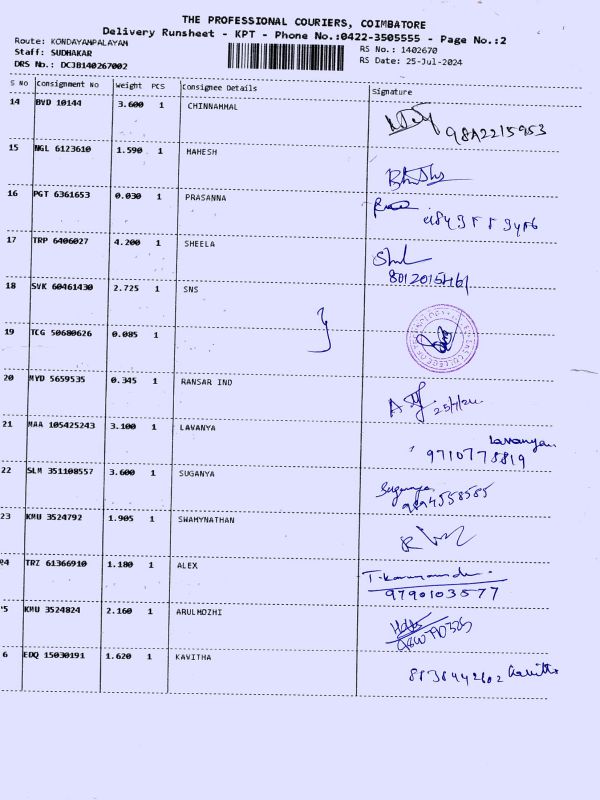 THE PROFESSIONAL COURIERS, COIMBATORE
Delivery Runsheet - KPT - Phone No.:0422-3505555 - Page No.:2
Route: KONDAYAMPALAYAM
Staff: SUDHAKAR
DRS No.: DCJB140267002
RS No.: 1402670
RS Date: 25-Jul-2024
S No Consignment No Weight PCS Consignee Details Signature
14 BVD 10144 3.600 1 CHINNAMMAL
15 NGL 6123610 1.590 1 MAHESH
16 PGT 6361653 0.030 1 PRASANNA
17 TRP 6406027 4.200 1 SHEELA
18 SVK 60461430 2.725 1 SNS
19 TCG 50680626 0.085 1
20 MYD 5659535 0.345 1 RANSAR IND
25/7/24
21 MAA 105425243 3.100 1 LAVANYA Lavanya
9710778819
22 SLM 351108557 3.600 1 SUGANYA Suganya
9894558585
23 KMU 3524792 1.905 1 SWAMYNATHAN
24 TRZ 61366910 1.180 1 ALEX
9790103577
5 KMU 3524824 2.160 1 ARULMOZHI
6 EDQ 15030191 1.620 1 KAVITHA 8838442602 Kavitha